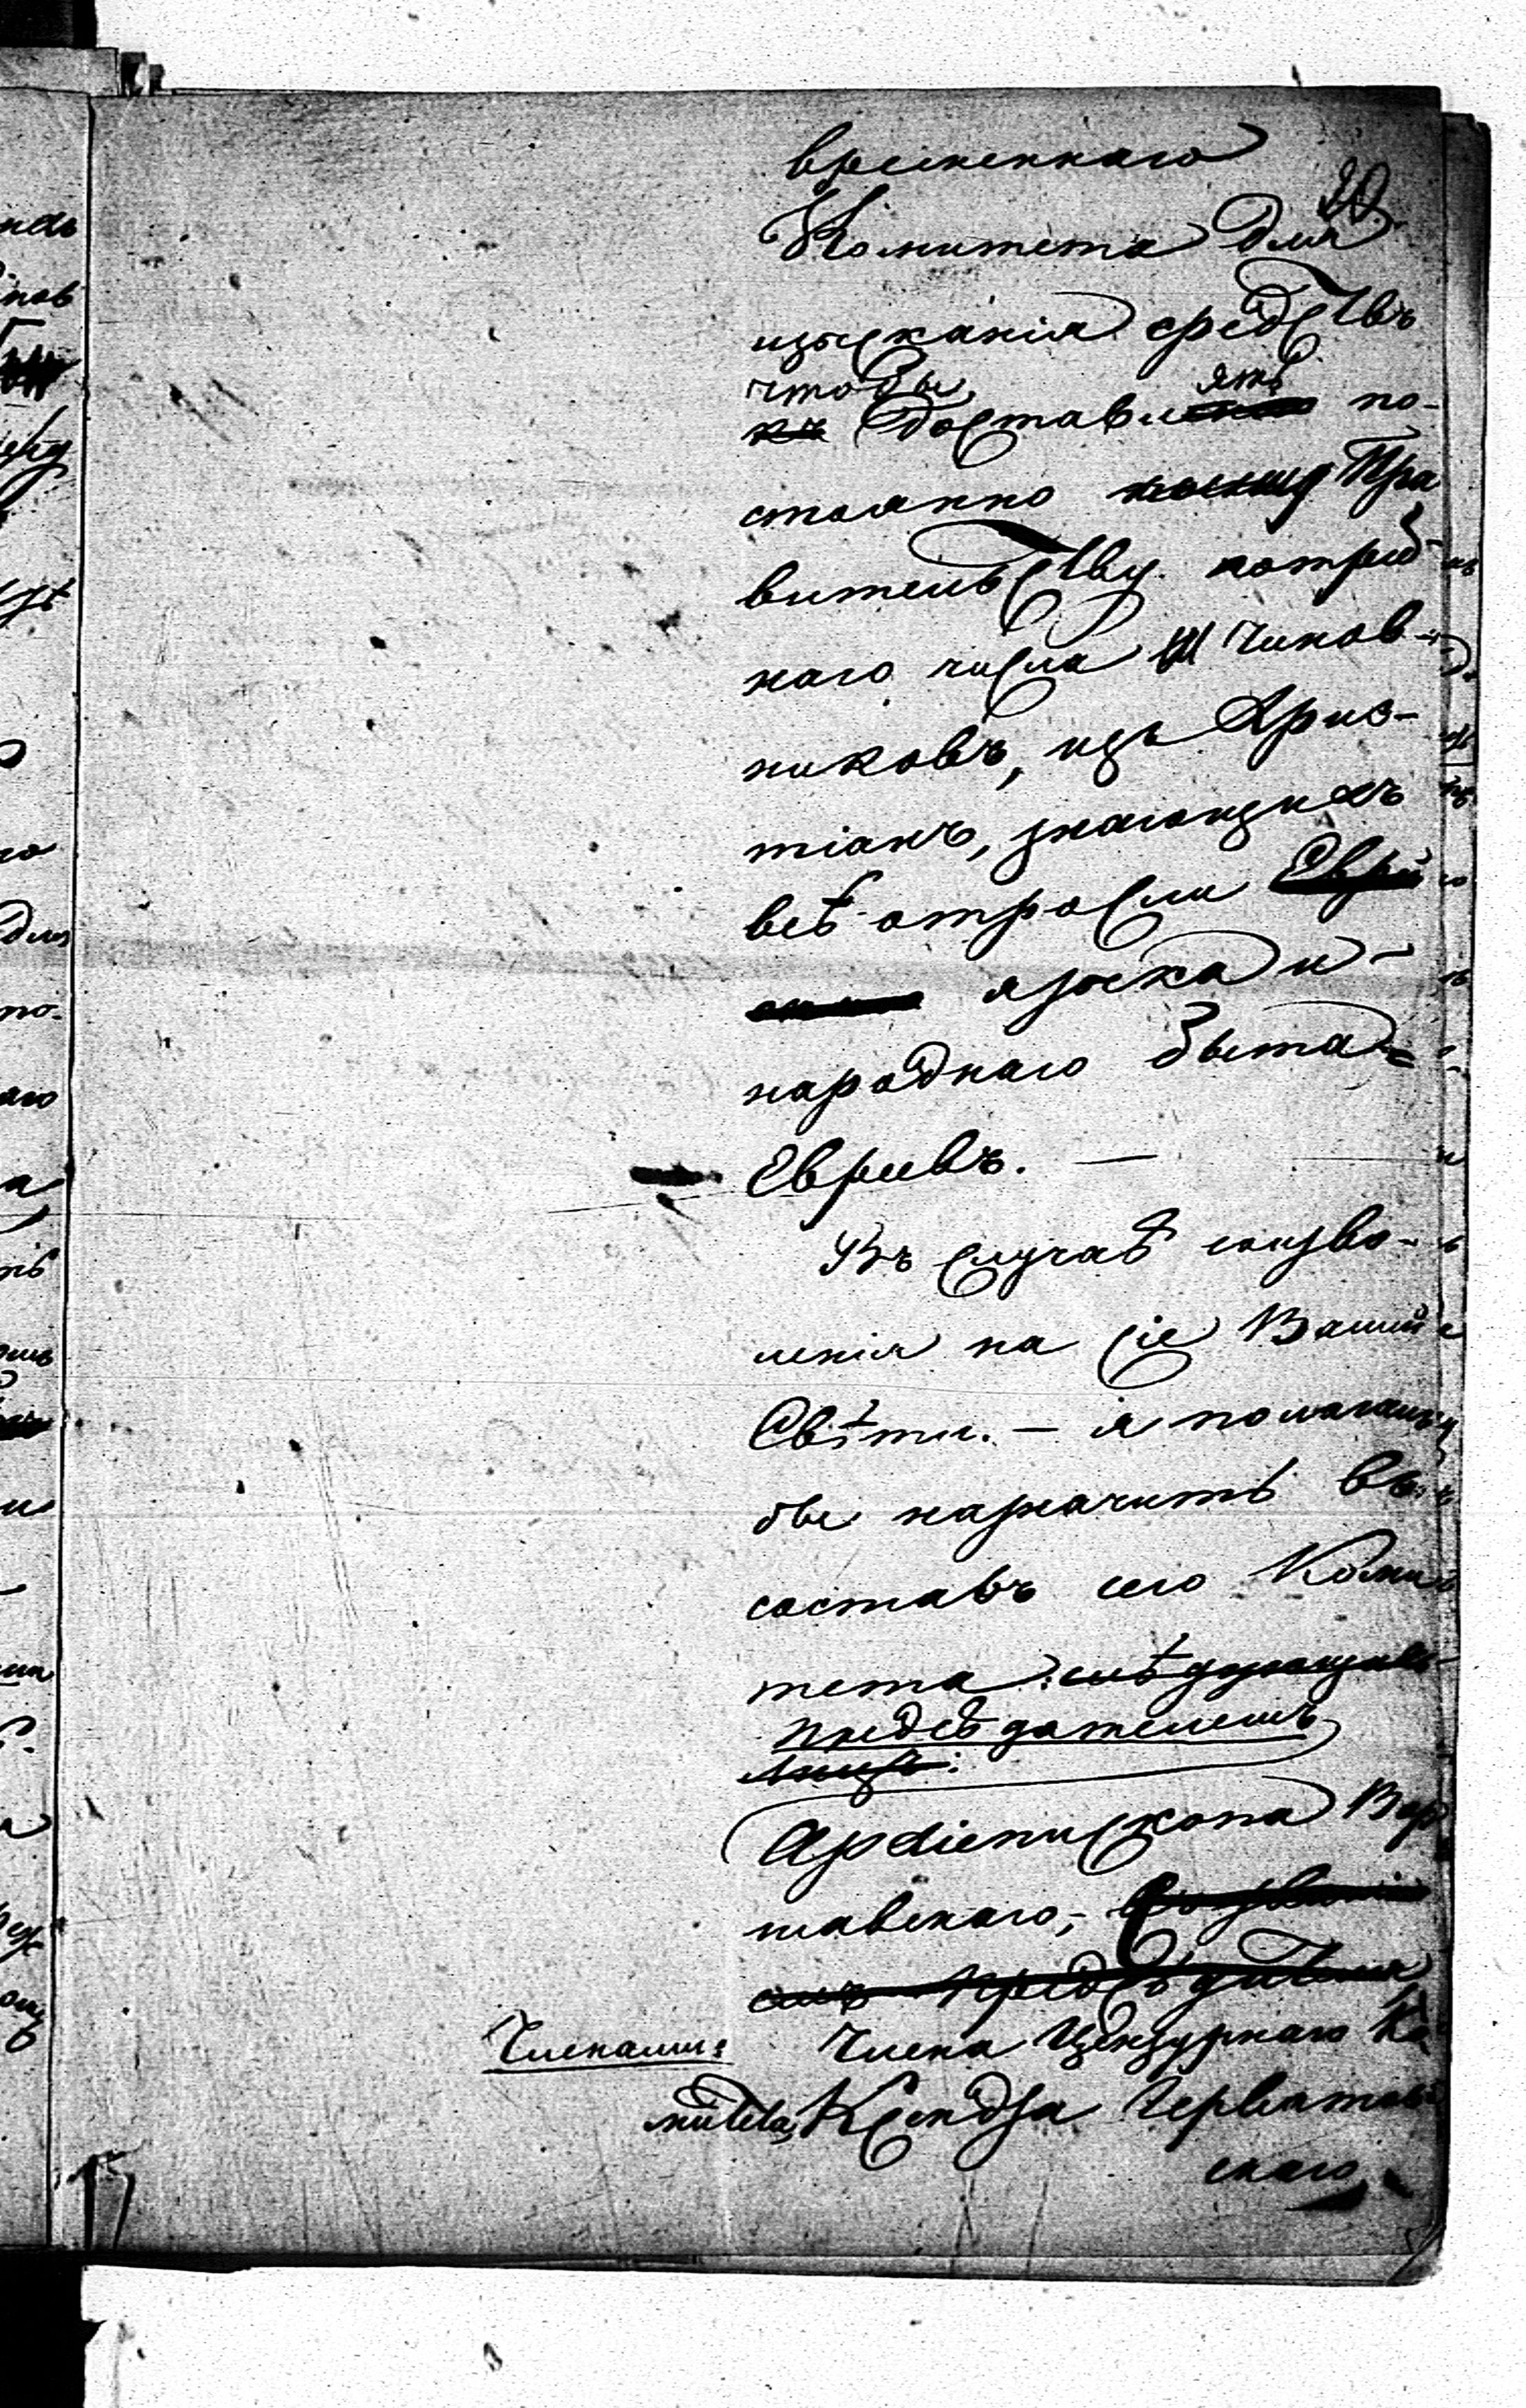 временнаго
20.
Комитета для
изысканія средствъ
чтобы ять
къ доставле по-
стоянно Пра
вительству потреб-
наго числа Чинов-
никовъ, изъ Хрис-
тіанъ, знающихъ
всѣ отрасли Еврей
языка и
народнаго быта
Евреевъ. —
Въ случаѣ соизво-
ленія на сіе Вашей
Свѣтл. — я полагалъ
бы назначить въ
составъ сего Коми
тета: слѣдующихъ
предсѣдателемъ
лицъ:
Архіепископа Вар
шавскаго,
предсѣдателя,
Членами: Члена Цензурнаго Ко
митета, Ксендза
скаго,